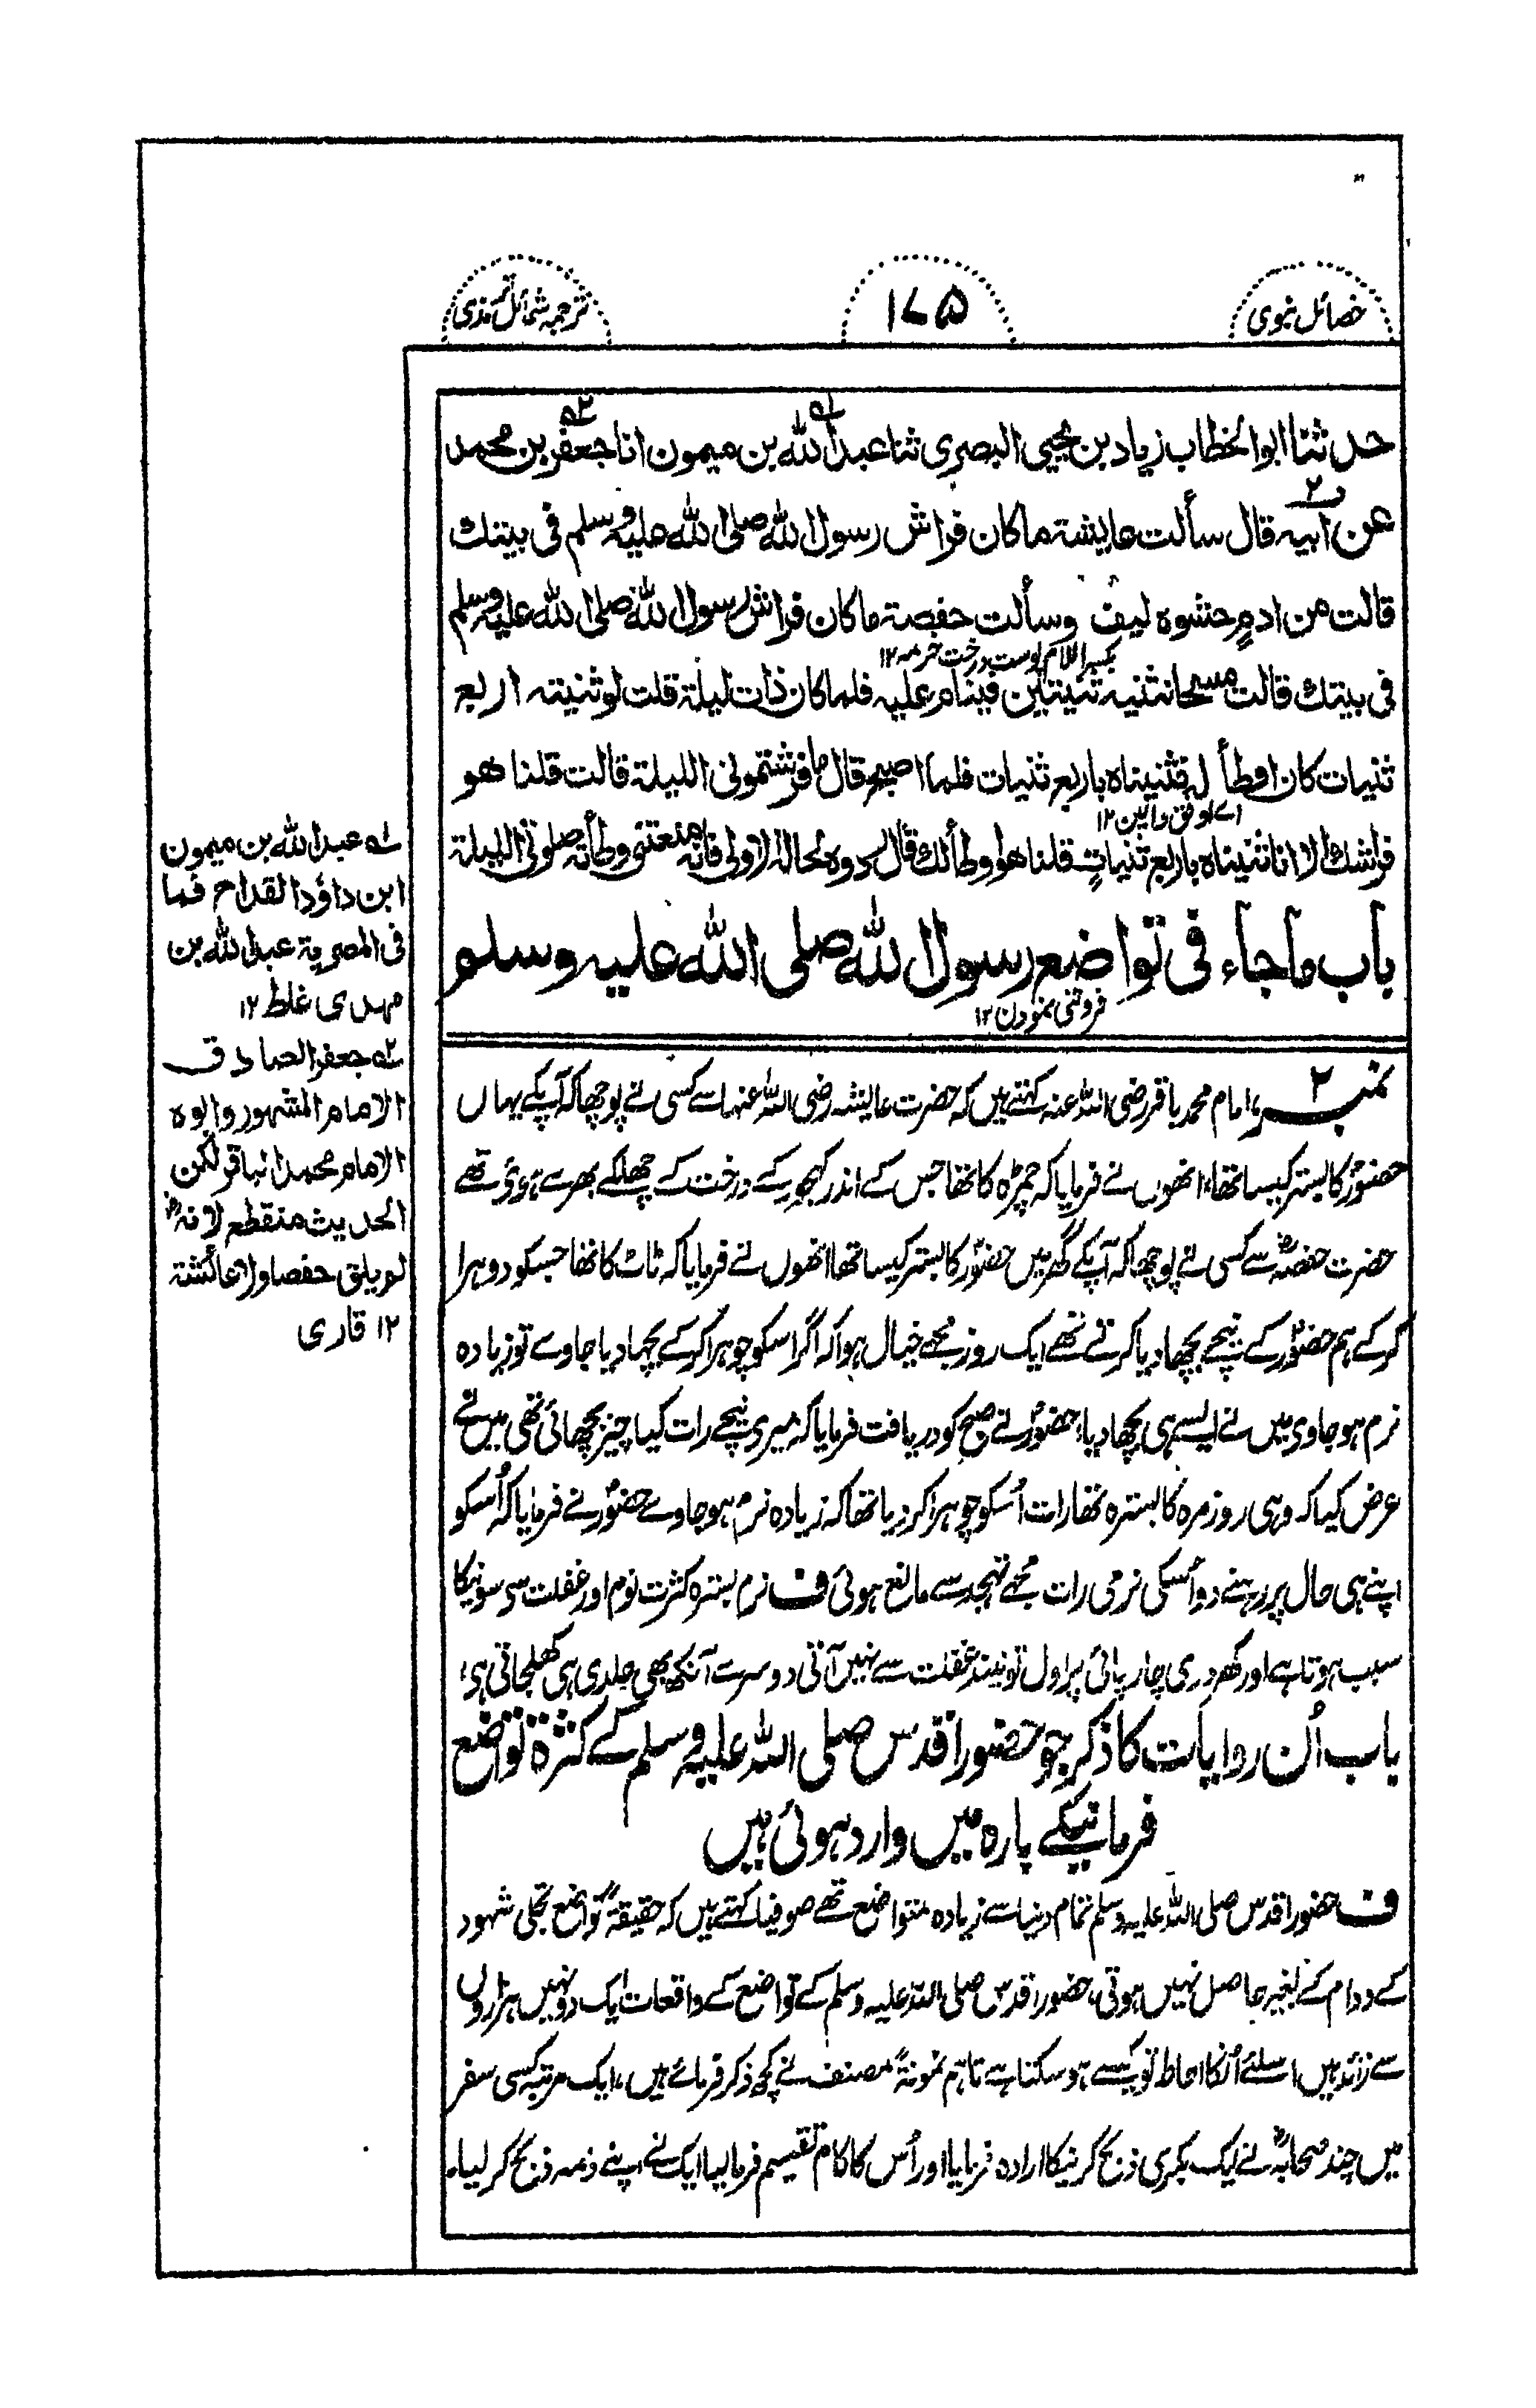 خصائل نبوی
۱۷۵
ترجمہ شمائل ترمذی
حدثنا ابوالخطاب زیاد بن یحیی البصری ثنا عبد الله بن میمون انا جعفر بن محمد
عن ابیہ قال سألت عایشۃ ما کان فراش رسول الله صلی الله علیہ وسلم فی بیتك
قالت من ادم حشوہ لیف وسألت حفصۃ ما کان فراش رسول الله صلی الله علیہ وسلم
بکسر اللام پوست درخت خرمہ ۱۲
فی بیتك قالت مسحا نثنیہ ثنیتین فینام علیہ فلما کان ذات لیلۃ قلت لو ثنیتہ اربع
ثنیات کان اوطأ لہ فثنیناہ باربع ثنیات فلما اصبح قال ما فرشتمونی اللیلۃ قالت قلنا هو
اے اوفق والین ۱۲
فراشك الا انا ثنیناہ باربع ثنیات قلنا هو اوطأ لك قال ردوہ لحالہ الاولی فانہ منعتنی وطأتہ صلوتی اللیلۃ
باب ما جاء فی تواضع رسول الله صلی الله علیہ وسلم
فروتنی نمودن ۱۲
نمبر ۲ امام محمد باقر رضی اللہ عنہ کہتے ہیں کہ حضرت عائیشہ رضی اللہ عنہا سے کسی نے پوچھا کہ آپ کے یہاں
حضورؐ کا بستر کیسا تھا، انھوں نے فرمایا کہ چمڑہ کا تھا جس کے اندر کھجور کے درخت کے چھلکے بھرے ہوئ تھے
حضرت حفصہؓ سے کسی نے پوچھا کہ آپ کے گھر میں حضورؐ کا بستر کیسا تھا انھوں نے فرمایا کہ ٹاٹ کا تھا جسکو دوہرا
کر کے ہم حضورؐ کے نیچے بچھا دیا کرتے تھے ایک روز مجھے خیال ہوا کہ اگر اسکو چوہرا کر کے بچھا دیا جاوے تو زیادہ
نرم ہو جاوی میں نے ایسے ہی بچھا دیا، حضورؐ نے صبح کو دریافت فرمایا کہ میری نیچے رات کیا چیز بچھائی تھی میں نے
عرض کیا کہ وہی روز مرہ کا بسترہ تھا رات اُسکو چوہرا کر دیا تھا کہ زیادہ نرم ہو جاوے حضورؐ نے فرمایا کہ اُسکو
اپنے ہی حال پر رہنے دو اُسکی نرمی رات مجھے تہجد سے مانع ہوئی ف نرم بسترہ کثرت نوم اور غفلت سی سونیکا
سبب ہوتا ہے اور کھردری چارپائی پر اول تو نیند غفلت سے نہیں آتی دوسرے آنکھ بھی جلدی ہی کھلجاتی ہی؛
باب اُن روایات کا ذکر جو حضور اقدس صلی اللہ علیہ وسلم کے کثرۃ تواضع
فرمانیکے بارہ میں وارد ہوئی ہیں
ف حضور اقدس صلی اللہ علیہ وسلم تمام دنیا سے زیادہ متواضع تھے صوفیا کہتے ہیں کہ حقیقۃً تواضع تجلی شہود
کے دوام کے بغیر حاصل نہیں ہوتی، حضور اقدس صلی اللہ علیہ وسلم کے تواضع کے واقعات ایک دو نہیں ہزاروں
سے زائد ہیں اسلئے اُنکا احاطہ تو کیسے ہو سکتا ہے تاہم نمونۃً مصنف نے کچھ ذکر فرمائے ہیں، ایک مرتبہ کسی سفر
میں چند صحابہؓ نے ایک بکری ذبح کرنیکا ارادہ فرمایا اور اُس کا کام تقسیم فرما لیا ایک نے اپنے ذمہ ذبح کر لیا۔
لہ عبد الله بن میمون
ابن داؤد القداح فما
فی المصریۃ عبد الله بن
مہدی غلط ۱۲
۲ہ جعفر الصادق
الامام المشہور وابوہ
الامام محمد الباقر لکن
الحدیث منقطع لانہ
لم یلق حفصۃ ولا عائشۃ
۱۲ قاری